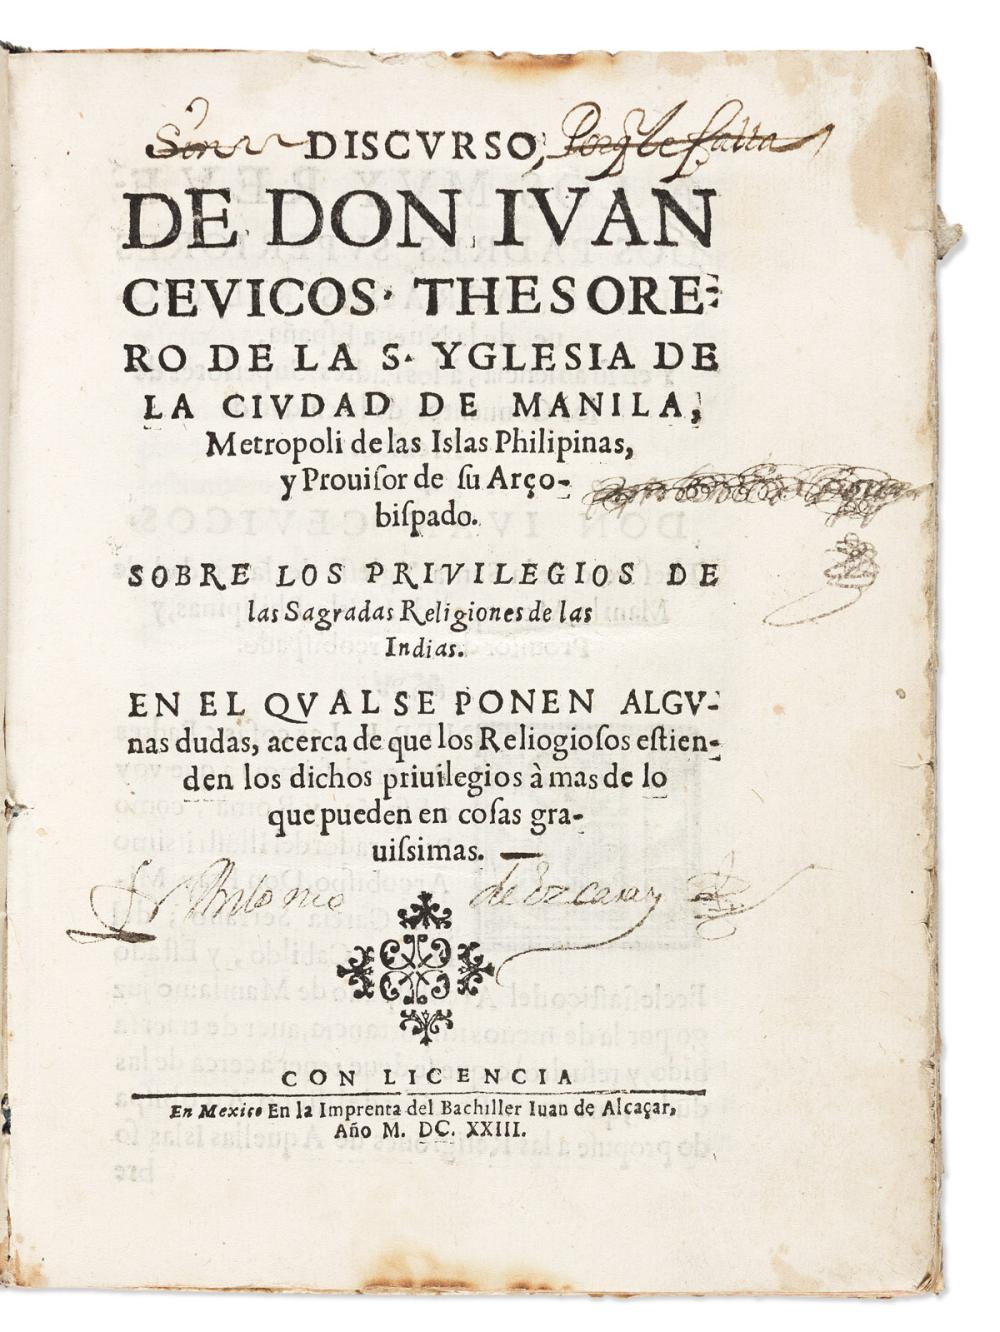 Sin DISCVRSO, Porq̃ le falta
DE DON IVAN
CEVICOS· THESORE-
RO DE LA S· YGLESIA DE
LA CIVDAD DE MANILA,
Metropoli de las Islas Philipinas,
y Prouiſor de ſu Arço-
biſpado.
SOBRE LOS PRIVILEGIOS DE
las Sagradas Religiones de las
Indias.
EN EL QVAL SE PONEN ALGV-
nas dudas, acerca de que los Reliogioſos eſtien-
den los dichos priuilegios à mas de lo
que pueden en coſas gra-
uiſsimas.
Antonio de Ezcaray
CON LICENCIA
En Mexico En la Imprenta del Bachiller Iuan de Alcaçar,
Año M. DC. XXIII.